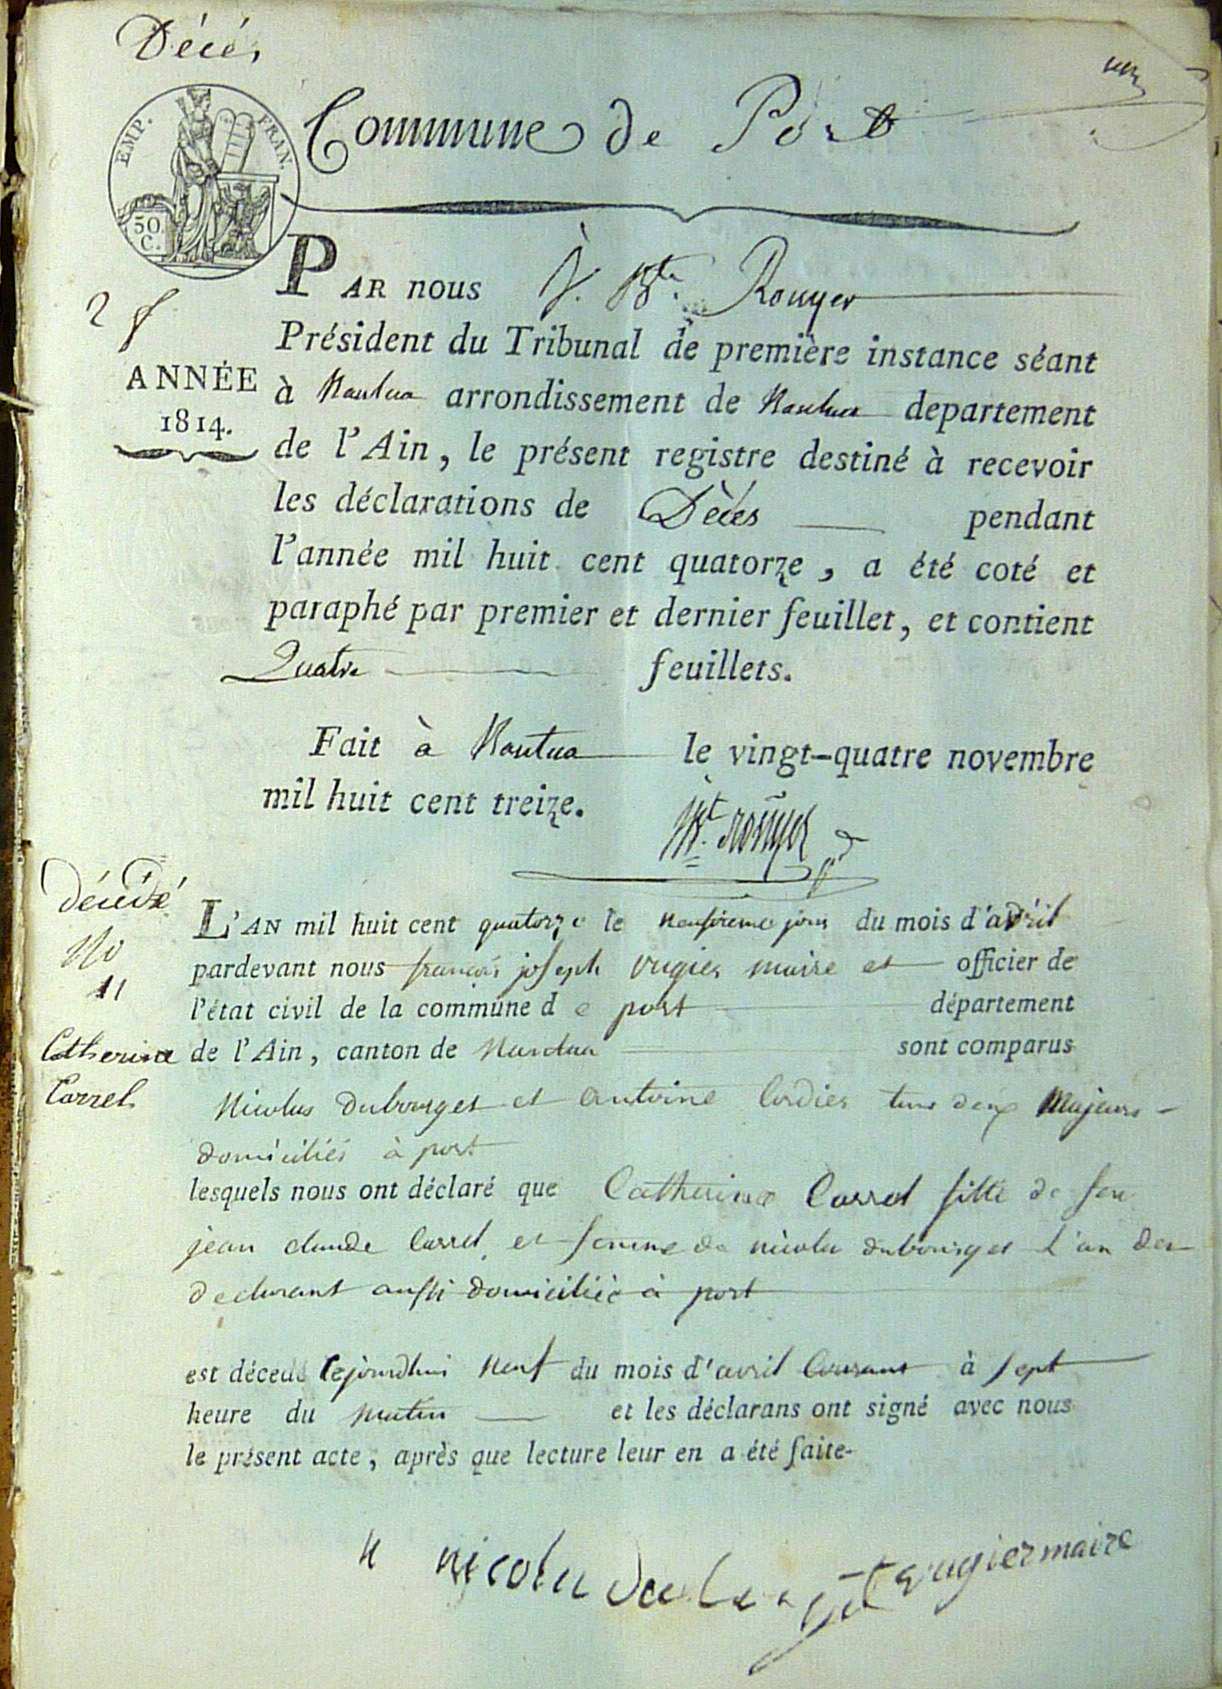 Décés
EMP. FRAN.
50 C.
Commune de Port
PAR nous J. Bte. Rouyer
Président du Tribunal de première instance séant
ANNÉE
1814.
à Nantua arrondissement de Nantua departement
de l'Ain, le présent registre destiné à recevoir
les déclarations de Décés pendant
l'année mil huit cent quatorze, a été coté et
paraphé par premier et dernier feuillet, et contient
Quatre feuillets.
Fait à Nantua le vingt-quatre novembre
mil huit cent treize.
Bt. rouyer
décédé
No
11
Catherine
Carrel
L'AN mil huit cent quatorze le neufvieme jour du mois d'avril
pardevant nous françois joseph vugier maire et officier de
l'état civil de la commune de port département
de l'Ain, canton de Nantua sont comparus
Nicolas dubourget et antoine Cordier tous deux Majeurs
domiciliés à port
lesquels nous ont déclaré que Catherine Carrel fille de feu
jean claude Carrel et femme de nicolas dubourget l'un des
declarant aussi domiciliée à port
est décedé cejourdhui neuf du mois d'avril Courant à sept
heure du matin et les déclarans ont signé avec nous
le présent acte, après que lecture leur en a été faite
nicola vugier maire